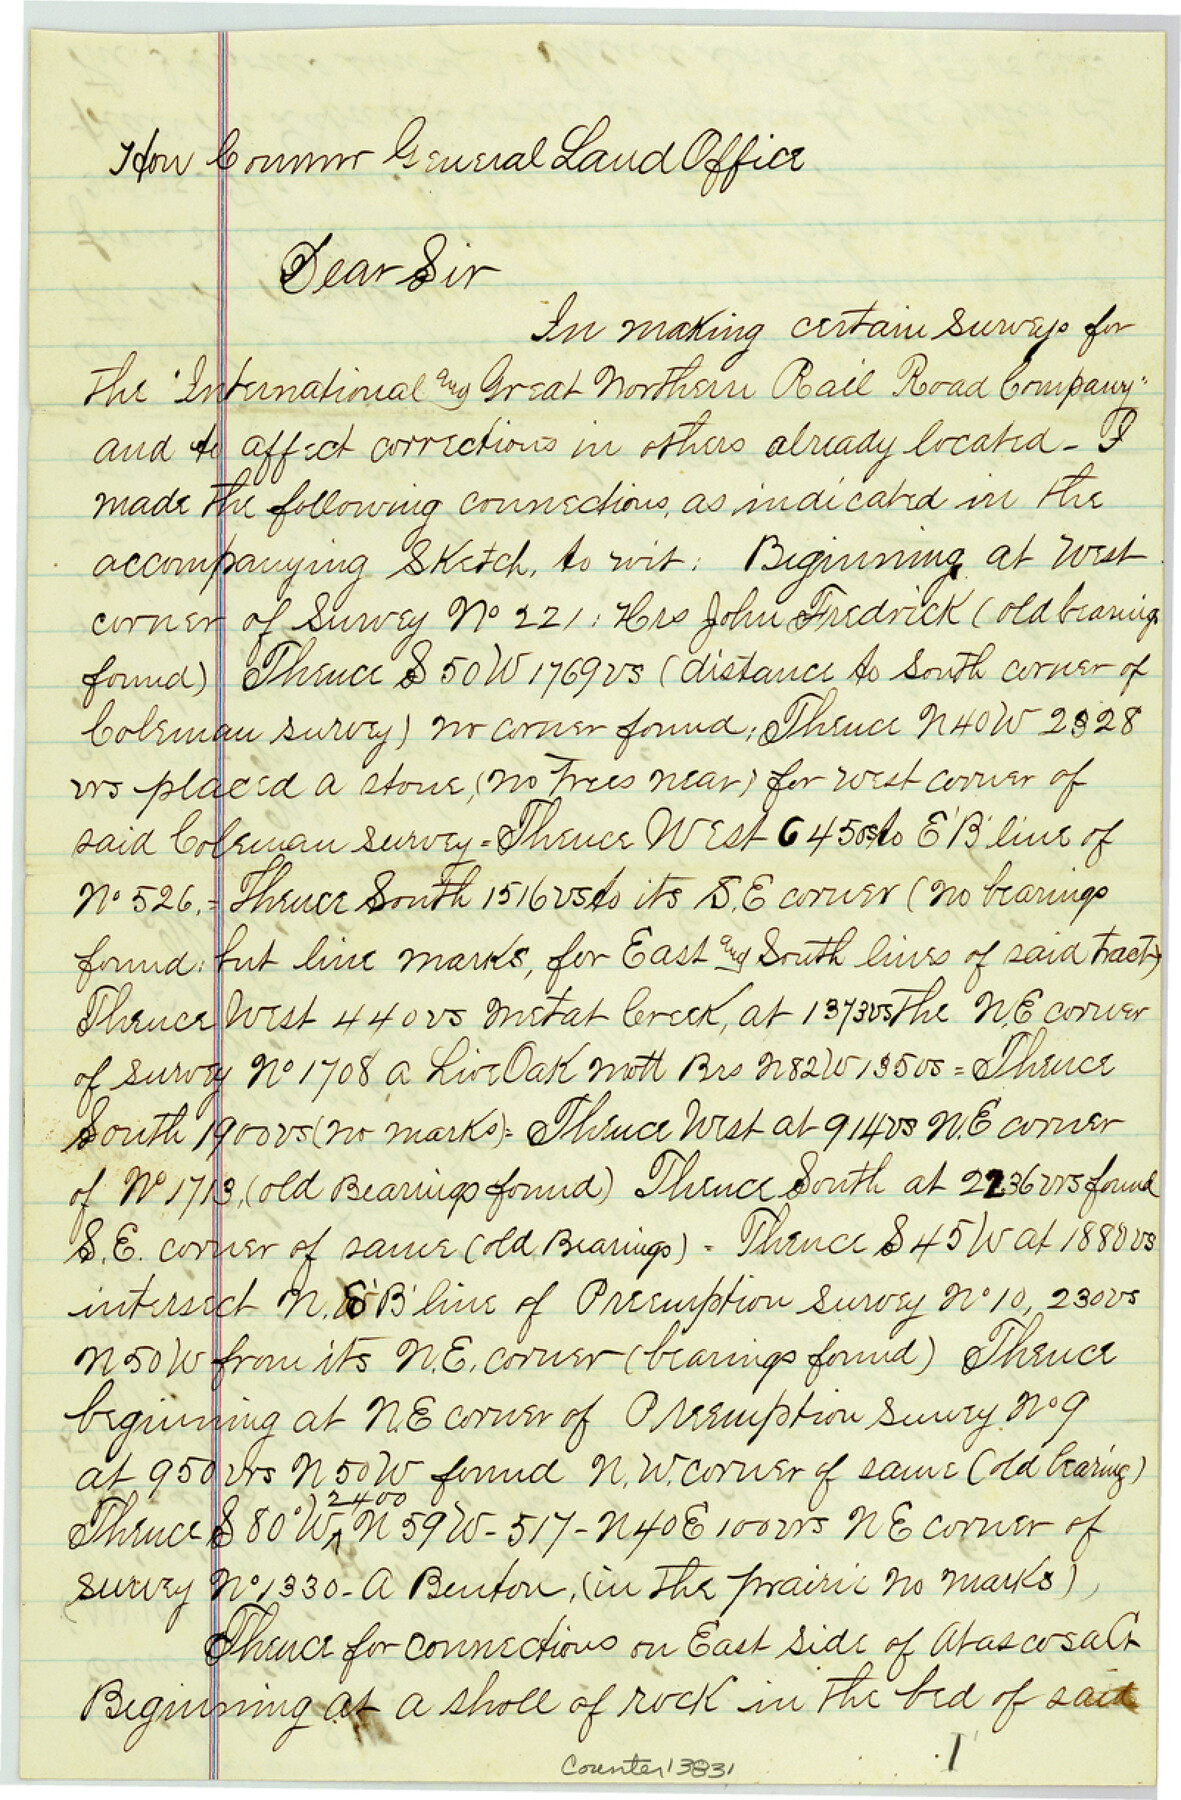 Hon Commr General Land Office
Dear Sir
In making certain surveys for
the "International and Great Northern Rail Road Company"
and to affect corrections in others already located - I
made the following connections, as indicated in the
accompanying Sketch, to wit: Beginning at West
corner of Survey No 221: Hrs John Fredrick (old bearings
found) Thence S 50 W 1769 vs (distance to South corner of
Coleman survey) no corner found; Thence N 40 W 2328
vrs placed a stone, (no trees near) for west corner of
said Coleman survey = Thence West 645 vs to E'B' line of
No 526. = Thence South 1516 vs to its S.E corner (no bearings
found: but line marks, for East and South lines of said tract)
Thence West 440 vs Metat Creek, at 1373 vs the N.E corner
of survey No 1708 a Live Oak mott Brs N82W 135 vs = Thence
South 1900 vs (no marks) = Thence West at 914 vs N.E corner
of No 1713, (old Bearings found) Thence South at 2236 vrs found
S.E. corner of same (old Bearings) - Thence S 45 W at 1880 vs
intersect N. E'B' line of Preemption survey No 10, 230 vs
N 50 W from its N.E. corner (bearings found) Thence
beginning at N.E corner of Preemption survey No 9
at 950 vrs N 50 W found N.W. corner of same (old bearing)
Thence S 80° W, 2400 N 59 W - 517 - N 40 E 100 vrs N E corner of
survey No 1330 - A Benton, (in the prairie no marks),
Thence for connections on East side of Atascosa Cr
Beginning at a sholl of rock in the bed of said
1
Counter 13831